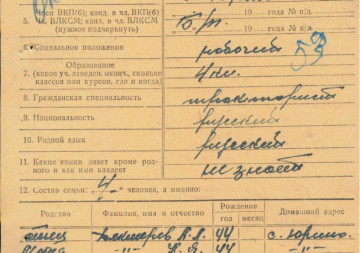 Член ВКП(б), канд. в чл. ВКП(б)
5. Чл. ВЛКСМ, канд. в чл. ВЛКСМ
(нужное подчеркнуть)
б/п. 19 года № п/д.
19 года № п/д.
6. Социальное положение рабочий
7. Образование
(какое уч. заведен. оконч., сколько
классов или курсов, где и когда)
4 кл.
8. Гражданская специальность тракторист
9. Национальность русский
10. Родной язык русский
11. Какие языки знает кроме род-
ного и как ими владеет
не знает
12. Состав семьи: 4 человек, а именно:
Родство Фамилия, имя и отчество Рождение Домашний адрес
год месяц
отец 44 с. Юрино
-"- 44 -"-